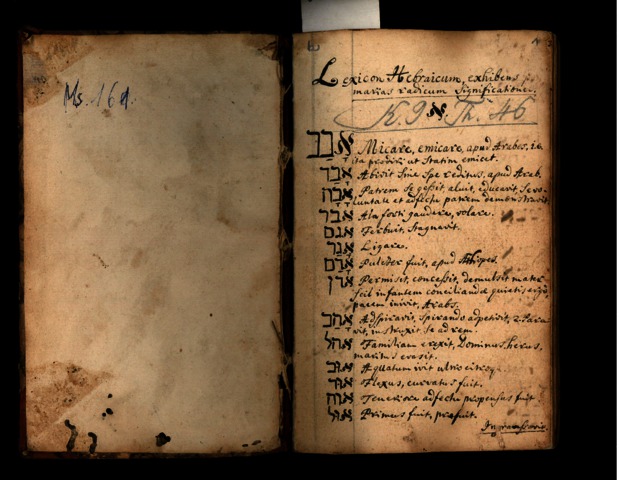 Ms. 169.
Lexicon Hebraicum, exhibens
marias radicum significationes.
K. 9 Th. 46
א
אבב Micare, emicare, apud Arabes, i.e.
ita prodire ut statim emicet.
אבד Abivit sine spe reditus, apud Arab.
אבה Patrem se gessit, aluit, educavit, se vo-
luntate et adfectu patrem demonstravit.
אבר Ala forti gaudere, volare.
אגם Ferbuit, stagnavit.
אגר Ligare.
אדם Pulcher fuit, apud Æthiopes.
אדן Permisit, concessit, demulsit mater
scil infantem conciliandæ quietis ergo,
pacem inivit, Arabs.
אהב Adspiravit, spirando adpetivit, 2. Para
vit, instruxit se ad rem.
אהל Familiam erexit, Dominus, herus,
maritus evasit.
Aquatum ivit ultro citroq.
Flexus, curvatus fuit.
Teneriore adfectu propensus fuit
Primus fuit, præfuit.